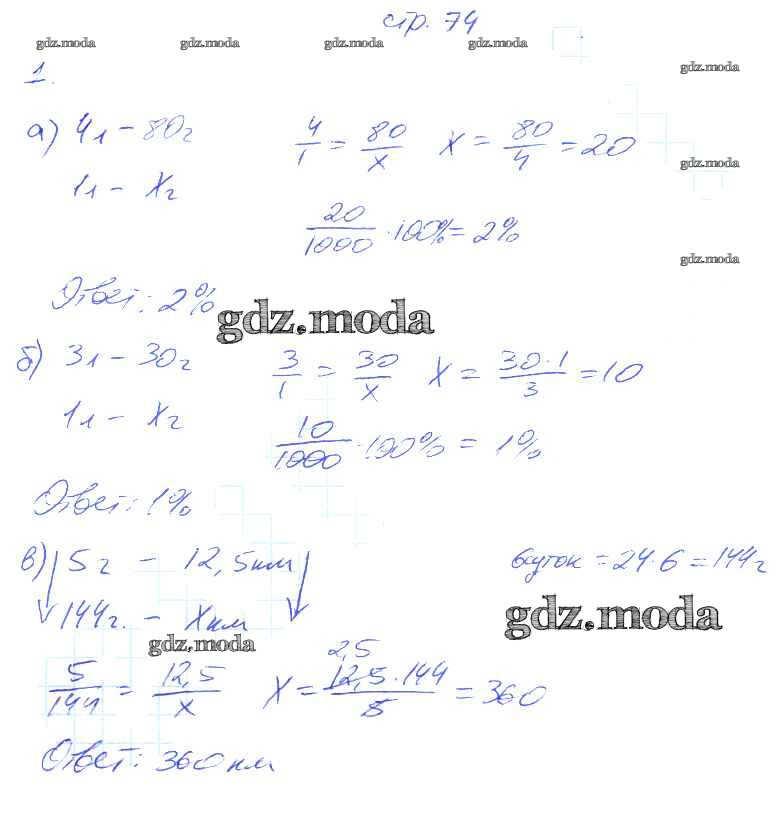 стр. 74
gdz.moda gdz.moda gdz.moda gdz.moda
gdz.moda
1.
а) 4л – 80г 4/1 = 80/x x = 80/4 = 20
gdz.moda
1л – xг
20/1000 · 100% = 2%
gdz.moda
Ответ: 2%
gdz.moda
б) 3л – 30г 3/1 = 30/x x = 30·1/3 = 10
1л – xг
10/1000 · 100% = 1%
Ответ: 1%
в) 5г – 12,5км 6суток = 24·6 = 144г
144г. – xкм
gdz.moda
gdz.moda
2,5
5/144 = 12,5/x x = 12,5·144/5 = 360
Ответ: 360км